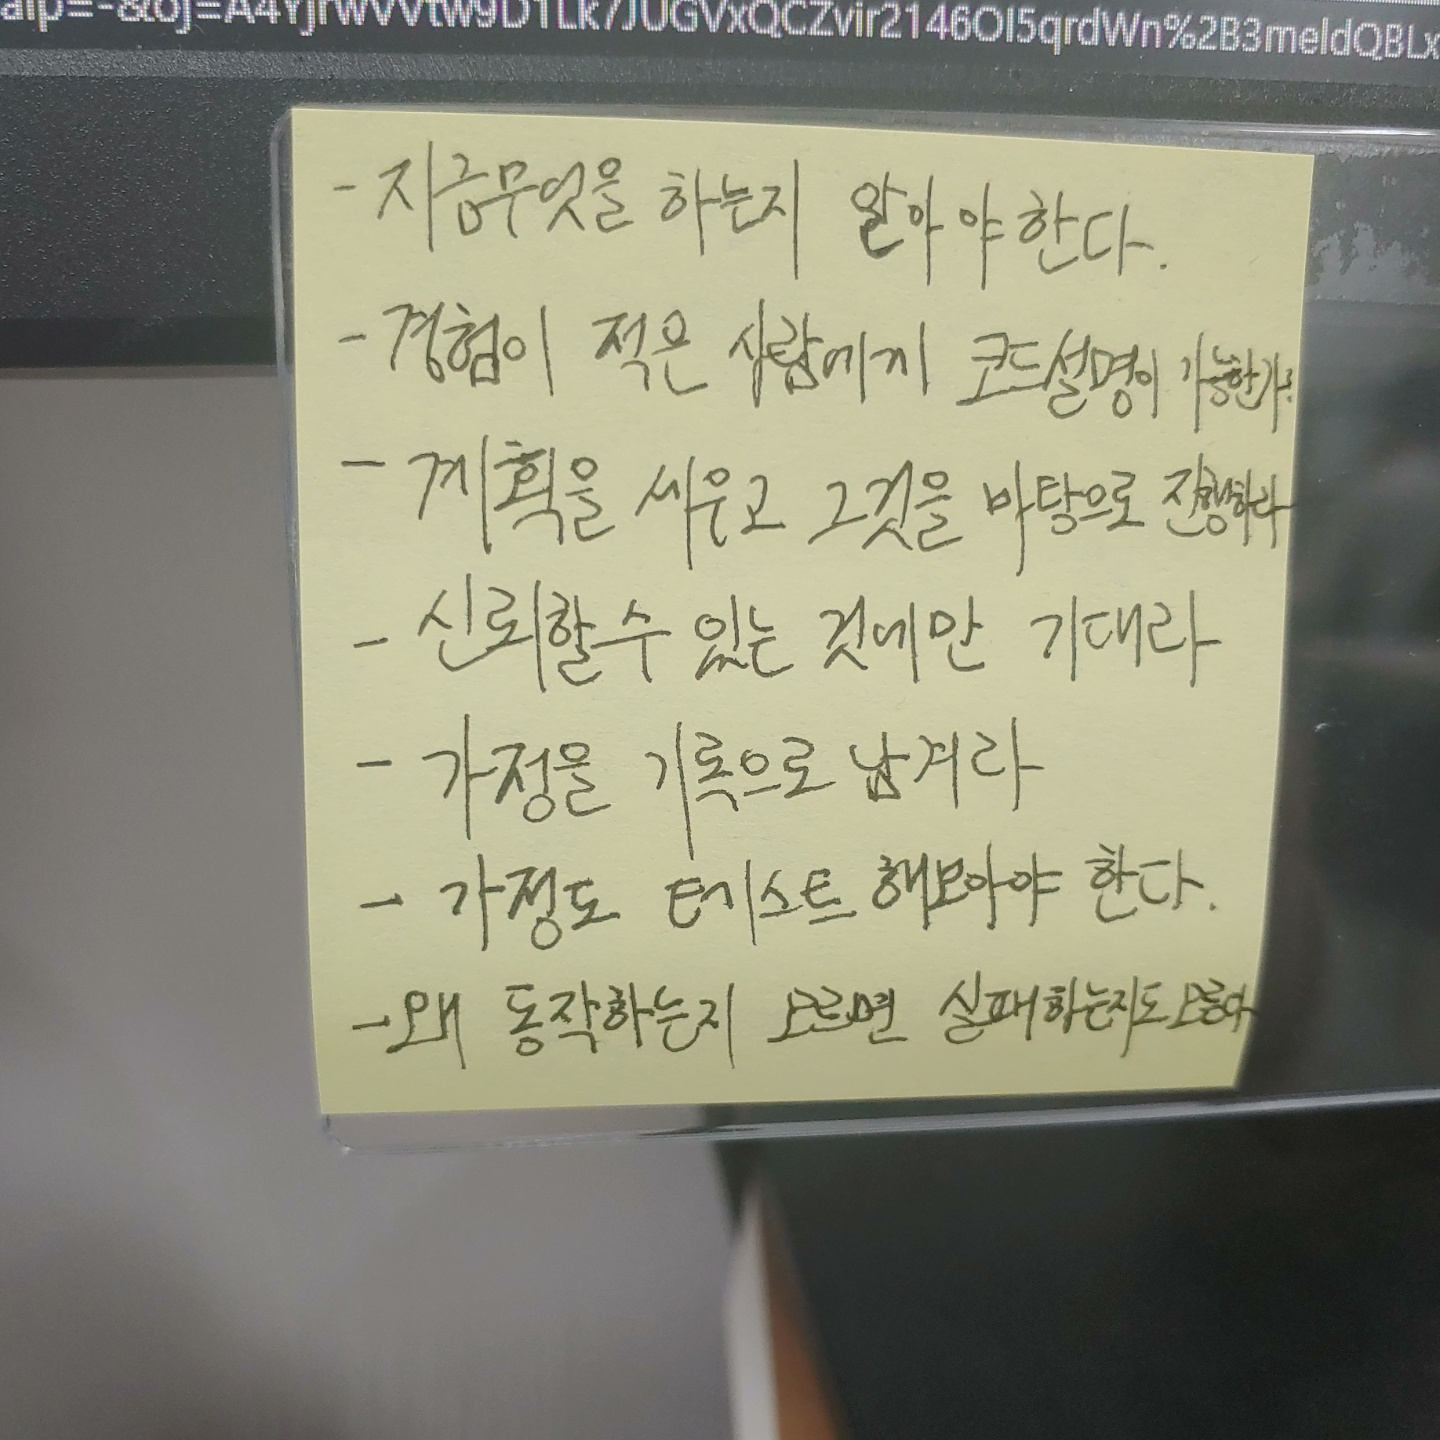 aip=-&oj=A4YjrwvVvtw9D1Lk7JUGVxQCZvir2146OI5qrdWn%2B3meldQBLx
- 지금무엇을 하는지 알아야한다.
- 경험이 적은 사람에게 코드설명이 가능한가?
- 계획을 세우고 그것을 바탕으로 진행하라
- 신뢰할수 있는 것에만 기대라
- 가정을 기록으로 남겨라
- 가정도 테스트 해보아야 한다.
- 왜 동작하는지 모르면 실패하는지도모른다